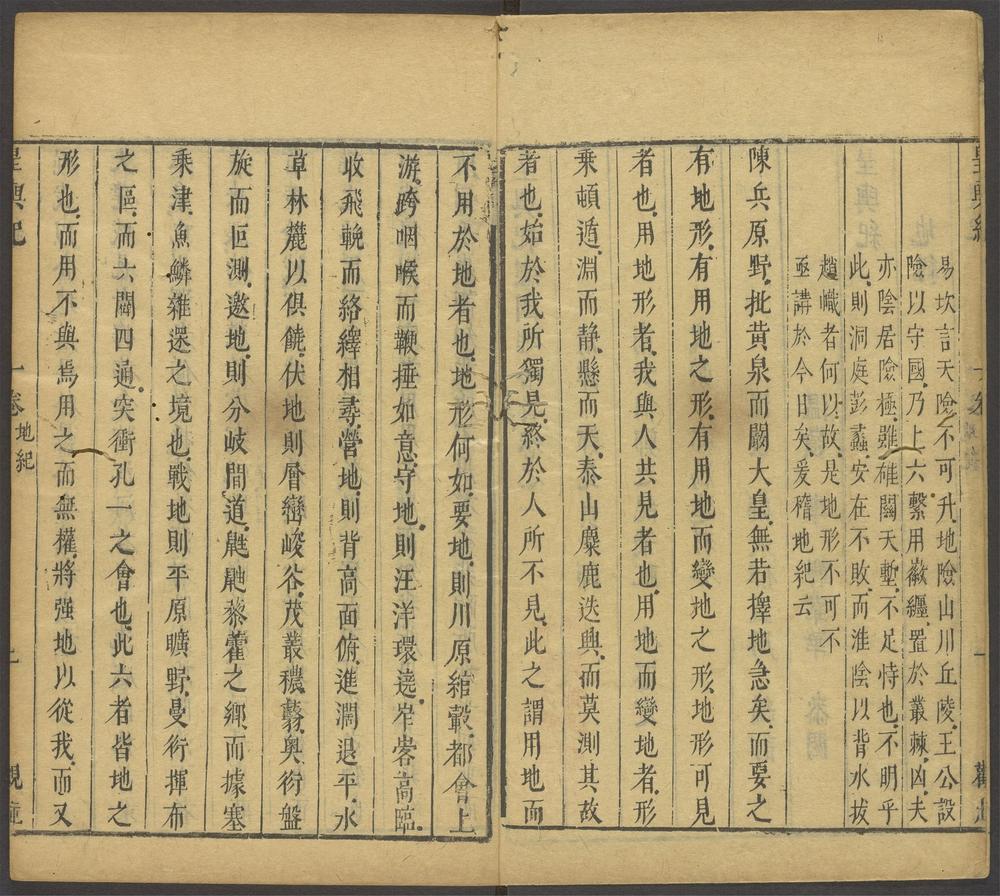 易坎言天險不可升地險山川丘陵王公設
險以守國乃上六繫用徽纆置於叢棘凶夫
亦陰居險極雖碓關天塹不足恃也不明乎
此則洞庭彭蠡安在不敗而淮陰以背水拔
趙幟者何以故是地形不可不
亟講於今日矣爰稽地紀云
陳兵原野批黃泉而鬪大皇無若擇地急矣而要之
有地形有用地之形有用地而變地之形地形可見
者也用地形者我與人共見者也用地而變地者形
乘頓遁淵而静懸而天泰山麋鹿迭興而莫測其故
者也始於我所獨見終於人所不見此之謂用地而
不用於地者也地形何如要地則川原綰轂都會上
游跨咽喉而鞭捶如意守地則汪洋環遶岞峉高臨
收飛輓而絡繹相尋營地則背高面俯進濶退平水
草林麓以俱饒伏地則層巒峻谷茂叢穠蘙奧衍盤
旋而叵測邀地則分岐間道鼪鼬藜藿之鄉而據塞
乘津魚鱗雜遝之境也戰地則平原曠野曼衍揮布
之區而六闢四通突衝孔一之會也此六者皆地之
形也而用不與焉用之而無權將强地以從我而又
皇輿紀 一卷 地紀